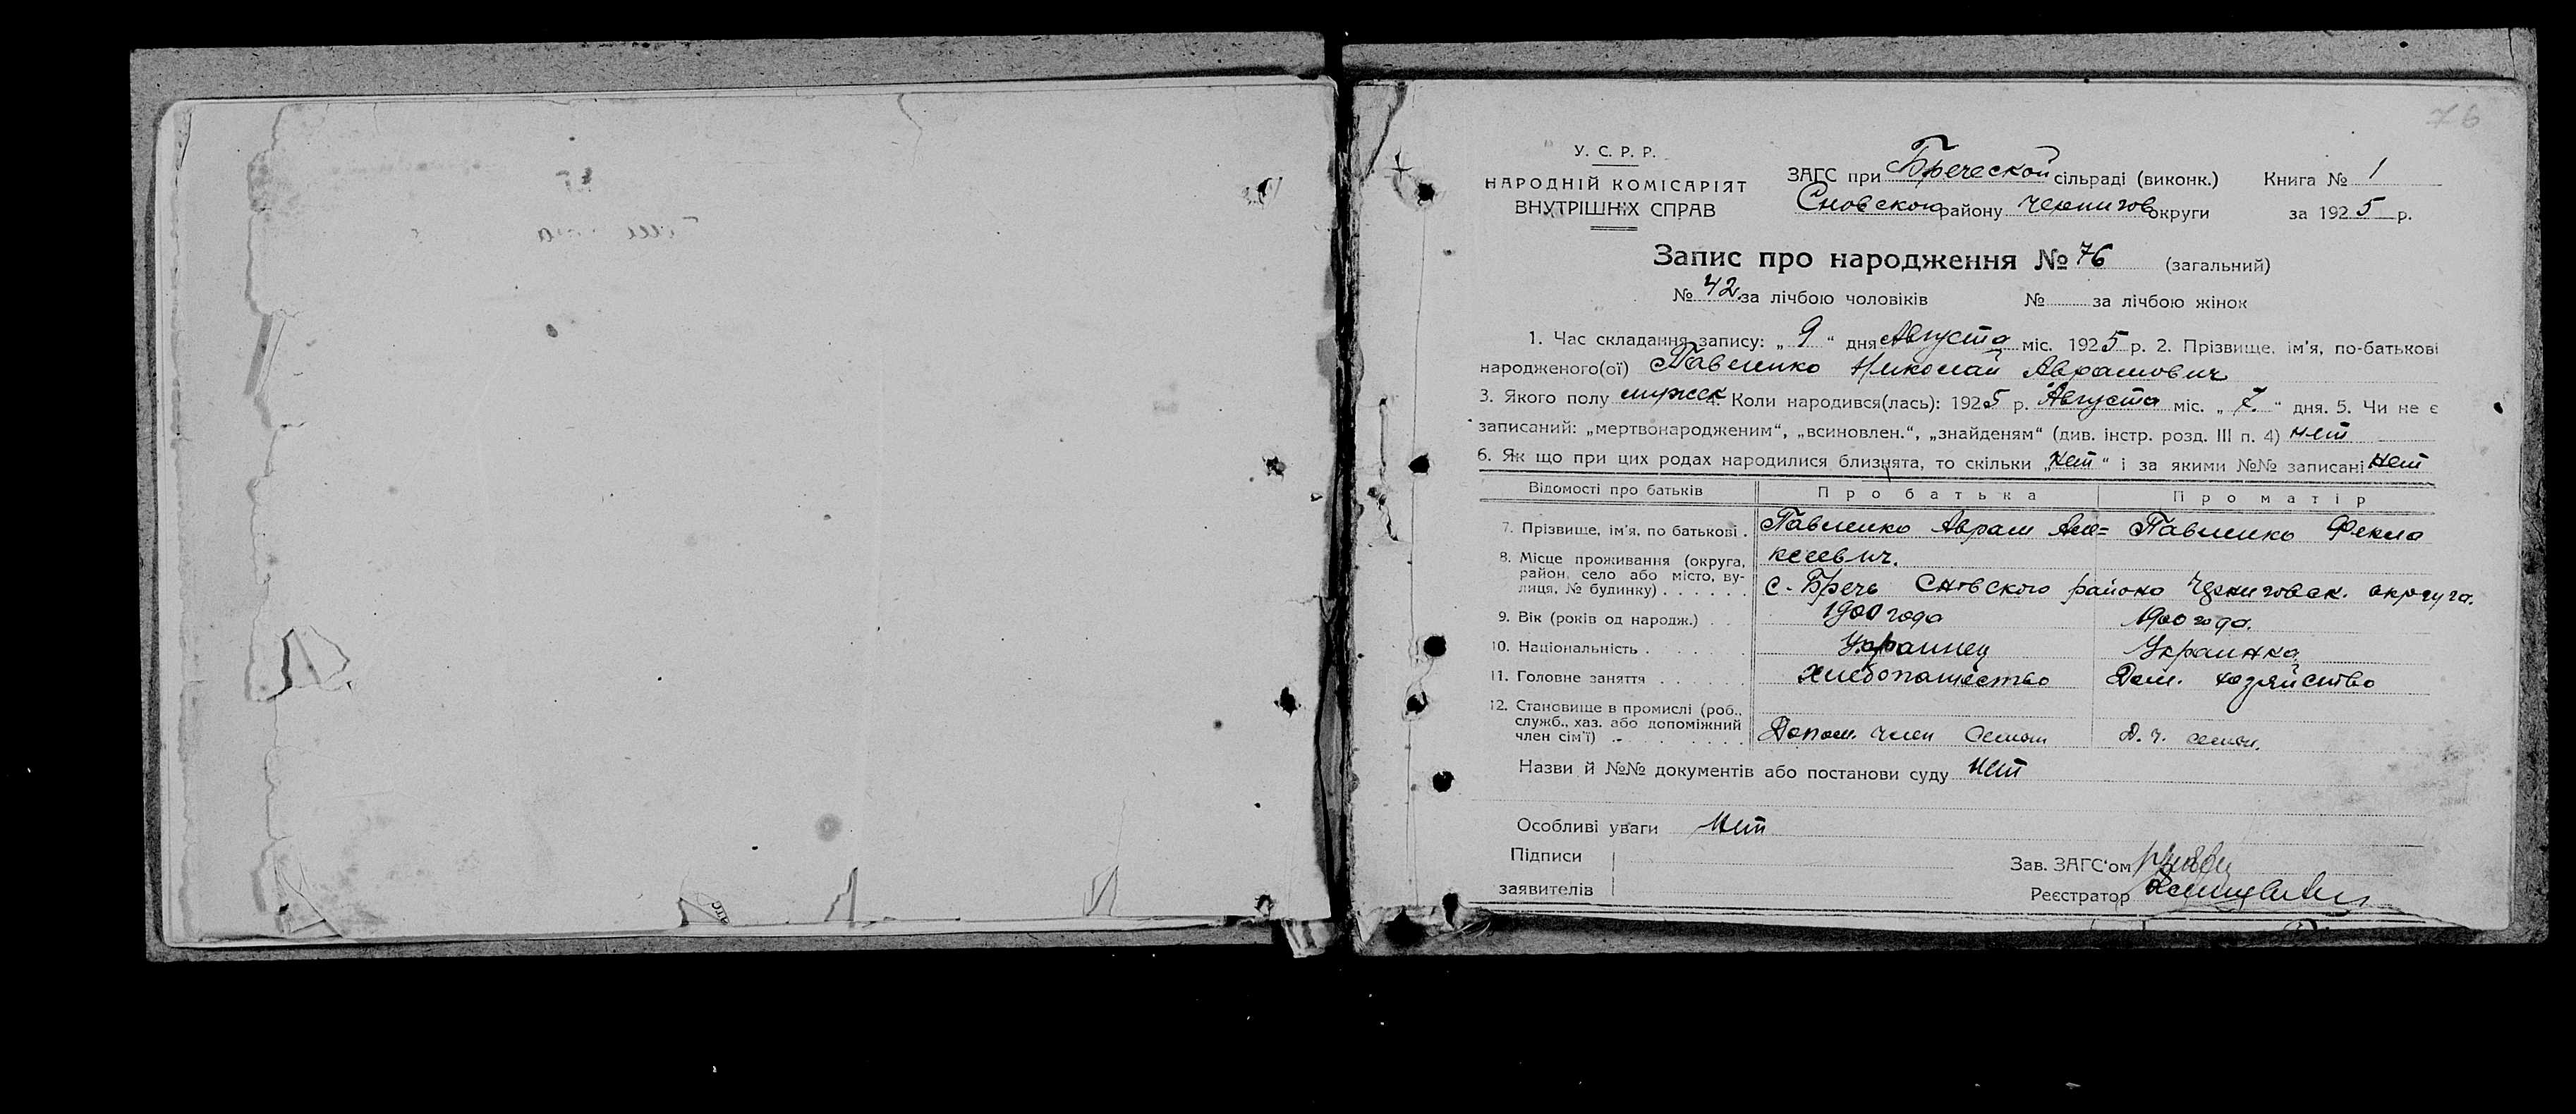 76
У. С. Р. Р.
НАРОДНІЙ КОМІСАРІЯТ
ВНУТРІШНІХ СПРАВ
ЗАГС при Бреческой сільраді (виконк.) Книга № 1
Сновского району Чернигов округи за 1925 р.
Запис про народження № 76 (загальний)
№ 42 за лічбою чоловіків № за лічбою жінок
1. Час складання запису: „ 9 “ дня Августа міс. 1925 р. 2. Прізвище, ім'я, по-батькові
народженого(ої) Павленко Николай Аврамович
3. Якого полу мужск 4. Коли народився(лась): 1925 р. Августа міс. „ 7. “ дня. 5. Чи не є
записаний: „мертвонародженим“, „всиновлен.“, „знайденям“ (див. інстр. розд. III п. 4) нет
6. Як що при цих родах народилися близнята, то скільки „Нет“ і за якими №№ записані Нет
Відомості про батьків Про батька Про матір
7. Прізвище, ім'я, по батькові . Павленко Аврам Але= Павленко Фекла
ксеевич.
8. Місце проживання (округа,
район, село або місто, ву-
лиця, № будинку) . . . . . . с. Бречь Сновского района Черниговск. округа.
9. Вік (років од народж.) . . 1900 года 1900 года.
10. Національність . . . . . . Украинец Украинка
11. Головне заняття . . . . . . Хлебопашество Дом. хозяйство
12. Становище в промислі (роб.,
служб., хаз. або допоміжний
член сім'ї) . . . . . . . . Допом. член семьи Д. ч. семьи.
Назви й №№ документів або постанови суду нет
Особливі уваги Нет
Підписи
заявителів
Зав. ЗАГС'ом
Реєстратор